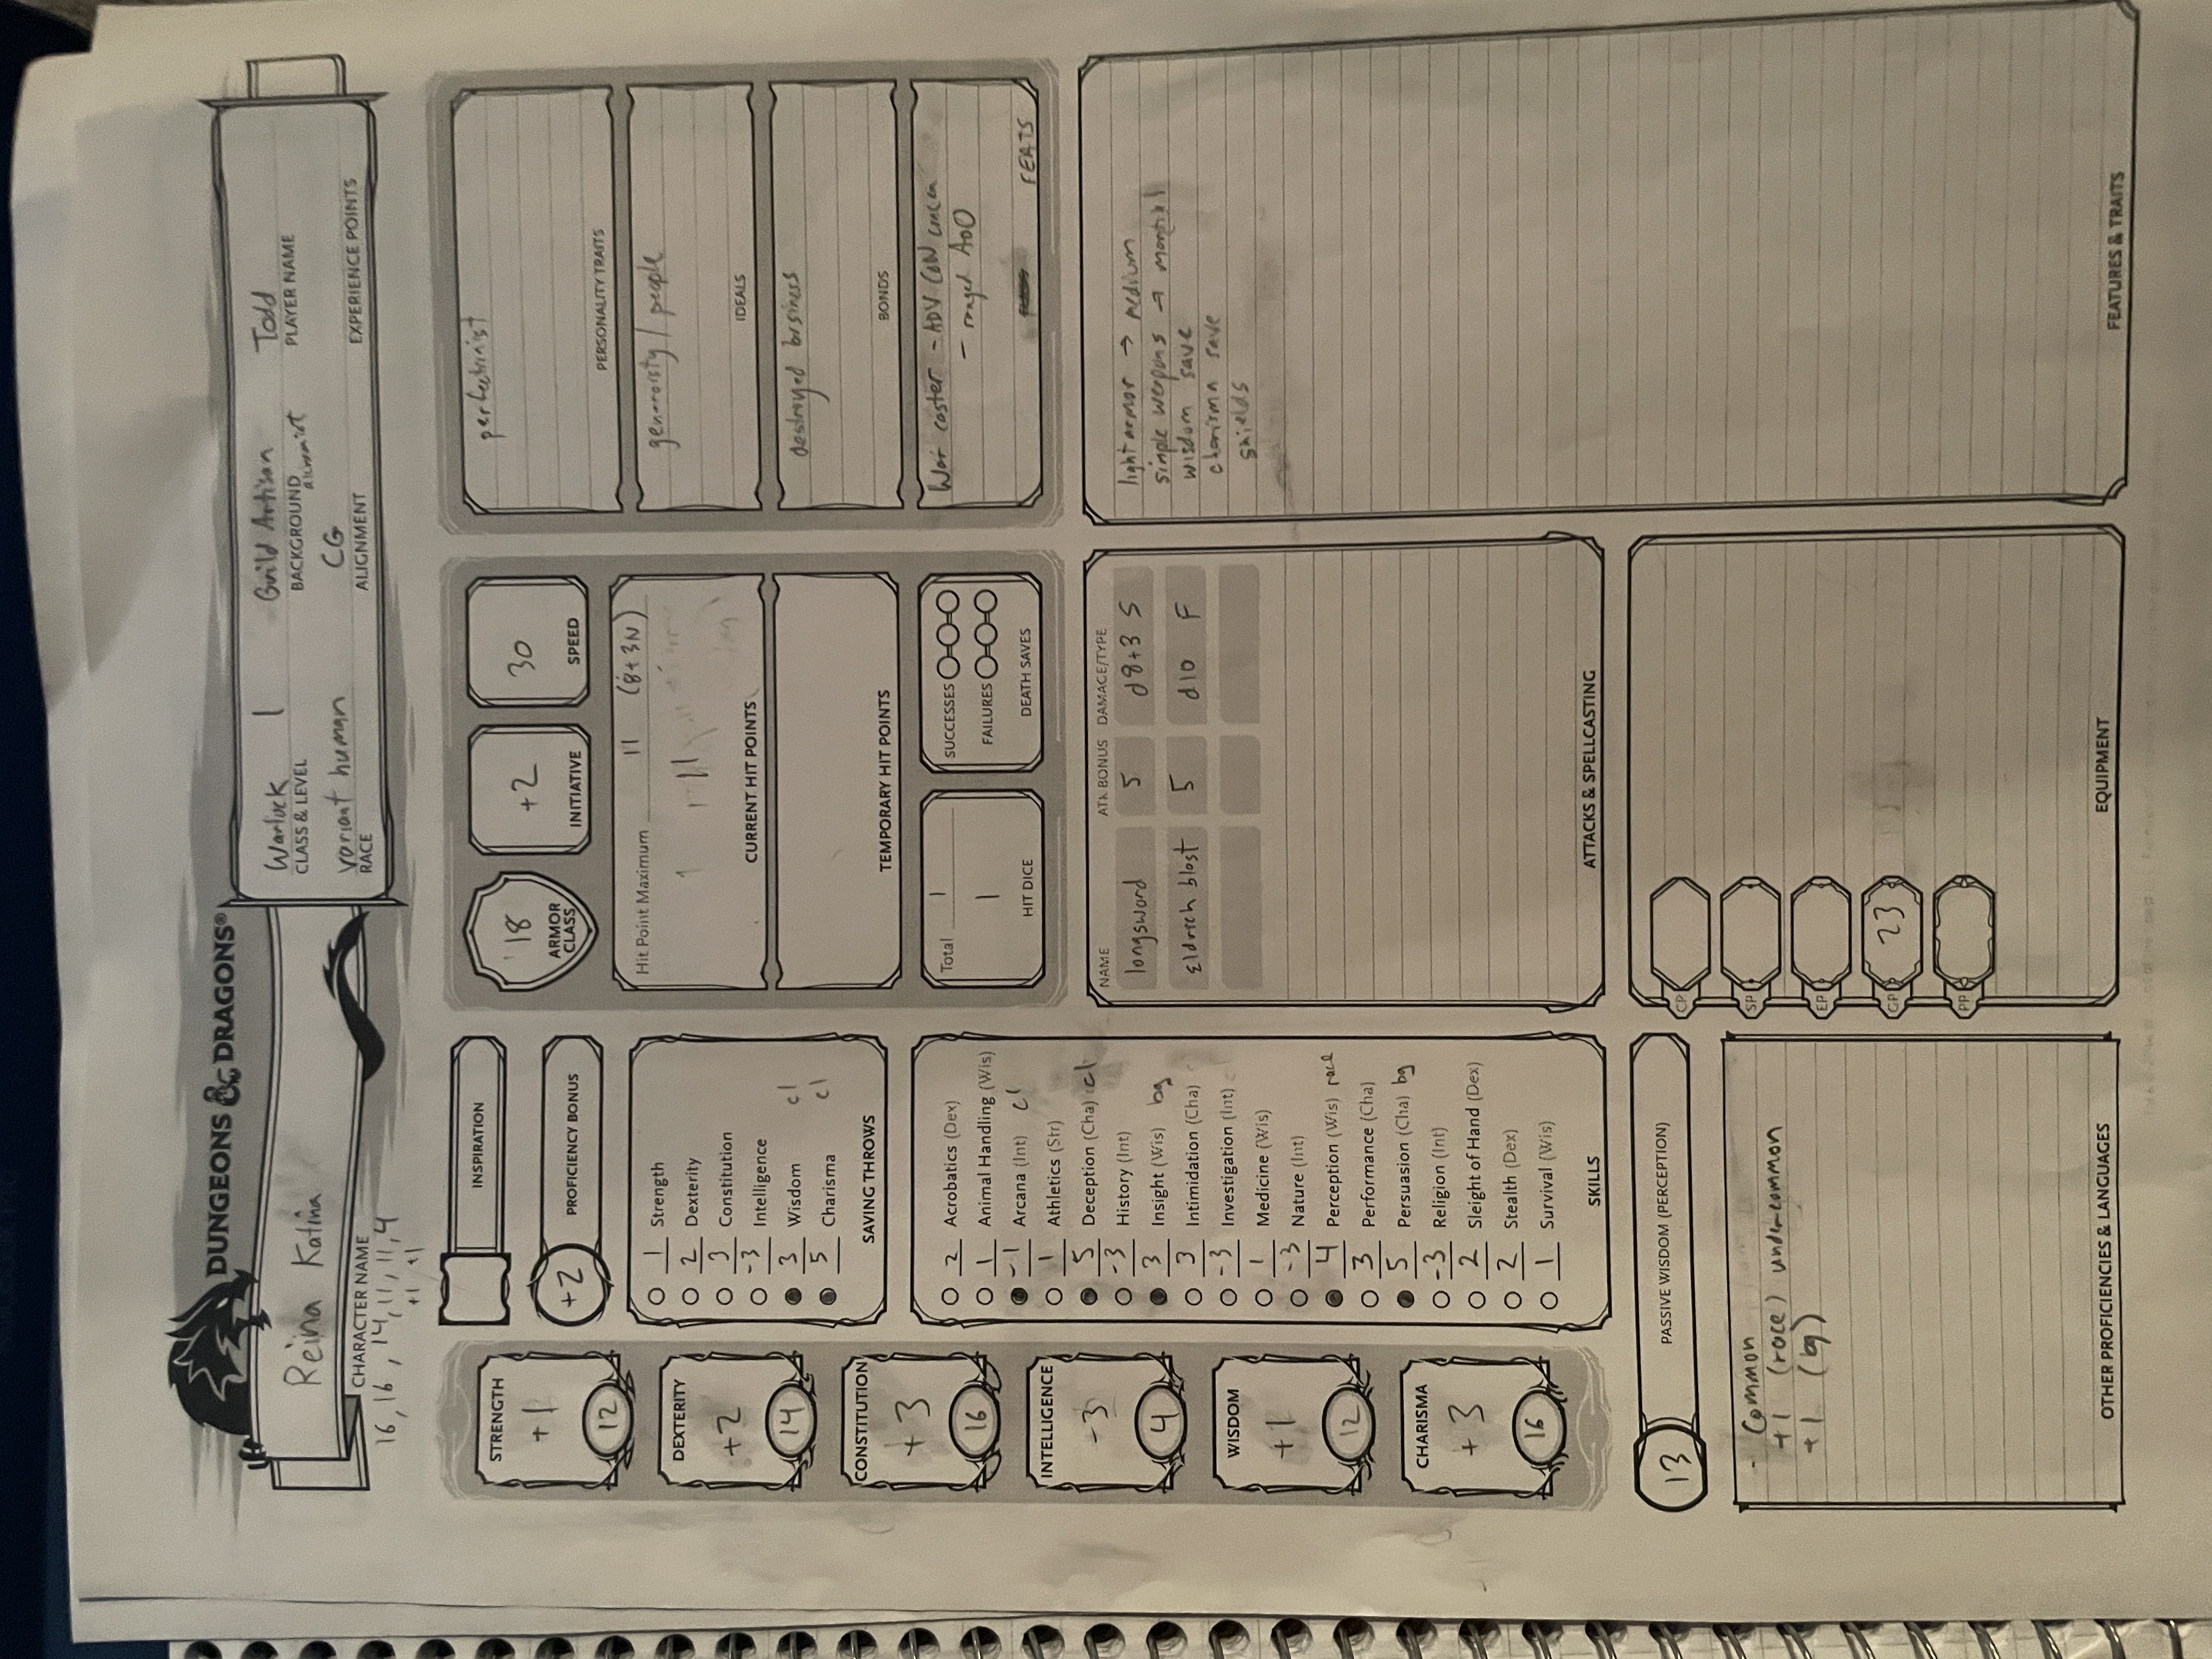 DUNGEONS & DRAGONS®
Reina Katina
CHARACTER NAME
16, 16, 14, 11, 11, 4
+1 +1
Warlock 1
CLASS & LEVEL
Guild Artisan
BACKGROUND
alchemist
Todd
PLAYER NAME
variant human
RACE
CG
ALIGNMENT
EXPERIENCE POINTS
STRENGTH
+1
12
DEXTERITY
+2
14
CONSTITUTION
+3
16
INTELLIGENCE
-3
4
WISDOM
+1
12
CHARISMA
+3
16
INSPIRATION
+2 PROFICIENCY BONUS
1 Strength
2 Dexterity
3 Constitution
-3 Intelligence
3 Wisdom cl
5 Charisma cl
SAVING THROWS
2 Acrobatics (Dex)
1 Animal Handling (Wis)
-1 Arcana (Int) cl
1 Athletics (Str)
5 Deception (Cha) cl
-3 History (Int)
3 Insight (Wis) bg
3 Intimidation (Cha)
-3 Investigation (Int)
1 Medicine (Wis)
-3 Nature (Int)
4 Perception (Wis) race
3 Performance (Cha)
5 Persuasion (Cha) bg
-3 Religion (Int)
2 Sleight of Hand (Dex)
2 Stealth (Dex)
1 Survival (Wis)
SKILLS
13 PASSIVE WISDOM (PERCEPTION)
- Common
+1 (race) undercommon
+1 (bg)
OTHER PROFICIENCIES & LANGUAGES
18
ARMOR
CLASS
+2
INITIATIVE
30
SPEED
Hit Point Maximum 11 (8+3N)
11
CURRENT HIT POINTS
TEMPORARY HIT POINTS
Total 1
1
HIT DICE
SUCCESSES
FAILURES
DEATH SAVES
NAME ATK BONUS DAMAGE/TYPE
longsword 5 d8+3 S
Eldrich blast 5 d10 F
ATTACKS & SPELLCASTING
CP
SP
EP
GP 23
PP
EQUIPMENT
perfectionist
PERSONALITY TRAITS
generoisty / people
IDEALS
destroyed business
BONDS
War caster - ADV CON
- ranged AoO
FEATS
light armor → medium
simple weapons → martial
wisdom save
charisma save
shields
FEATURES & TRAITS